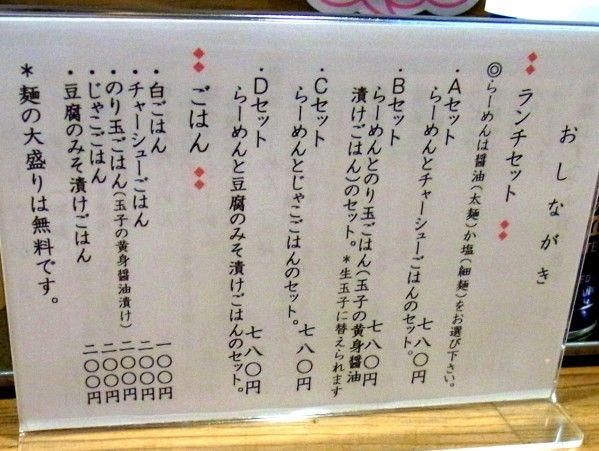 おしながき
◆◆ ランチセット ◆◆
◎らーめんは醤油(太麺)か塩(細麺)をお選び下さい。
・Aセット
らーめんとチャーシューごはんのセット。 七八〇円
・Bセット
らーめんとのり玉ごはん(玉子の黄身醤油
漬けごはん)のセット。 七八〇円
*生玉子に替えられます
・Cセット
らーめんとじゃこごはんのセット。 七八〇円
・Dセット
らーめんと豆腐のみそ漬けごはんのセット。 七八〇円
◆◆ ごはん ◆◆
・白ごはん 一〇〇円
・チャーシューごはん 二〇〇円
・のり玉ごはん(玉子の黄身醤油漬け) 二〇〇円
・じゃこごはん 二〇〇円
・豆腐のみそ漬けごはん 二〇〇円
*麺の大盛りは無料です。